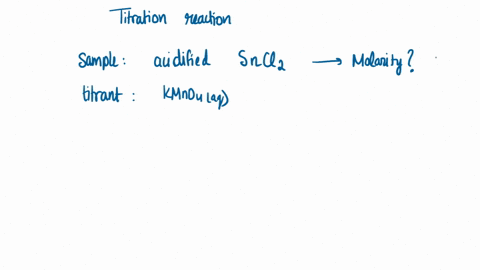 Titration reaction
Sample: acidified SnCl2 → Molarity?
titrant: KMnO4(aq)